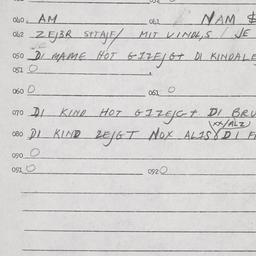 040. AM 041 NAM
042 ZEJER MIT VINDLS / JE
050 DI MAME HOT GIZEJGT DI KINDALE
051 O
060 O 061 O
070 DI KIND HOT GIZEJGT DI BRU
(XX/ALZ)
080 DI KIND ZEJGT NOX ALTS DI F
090 O
091 O 092 O